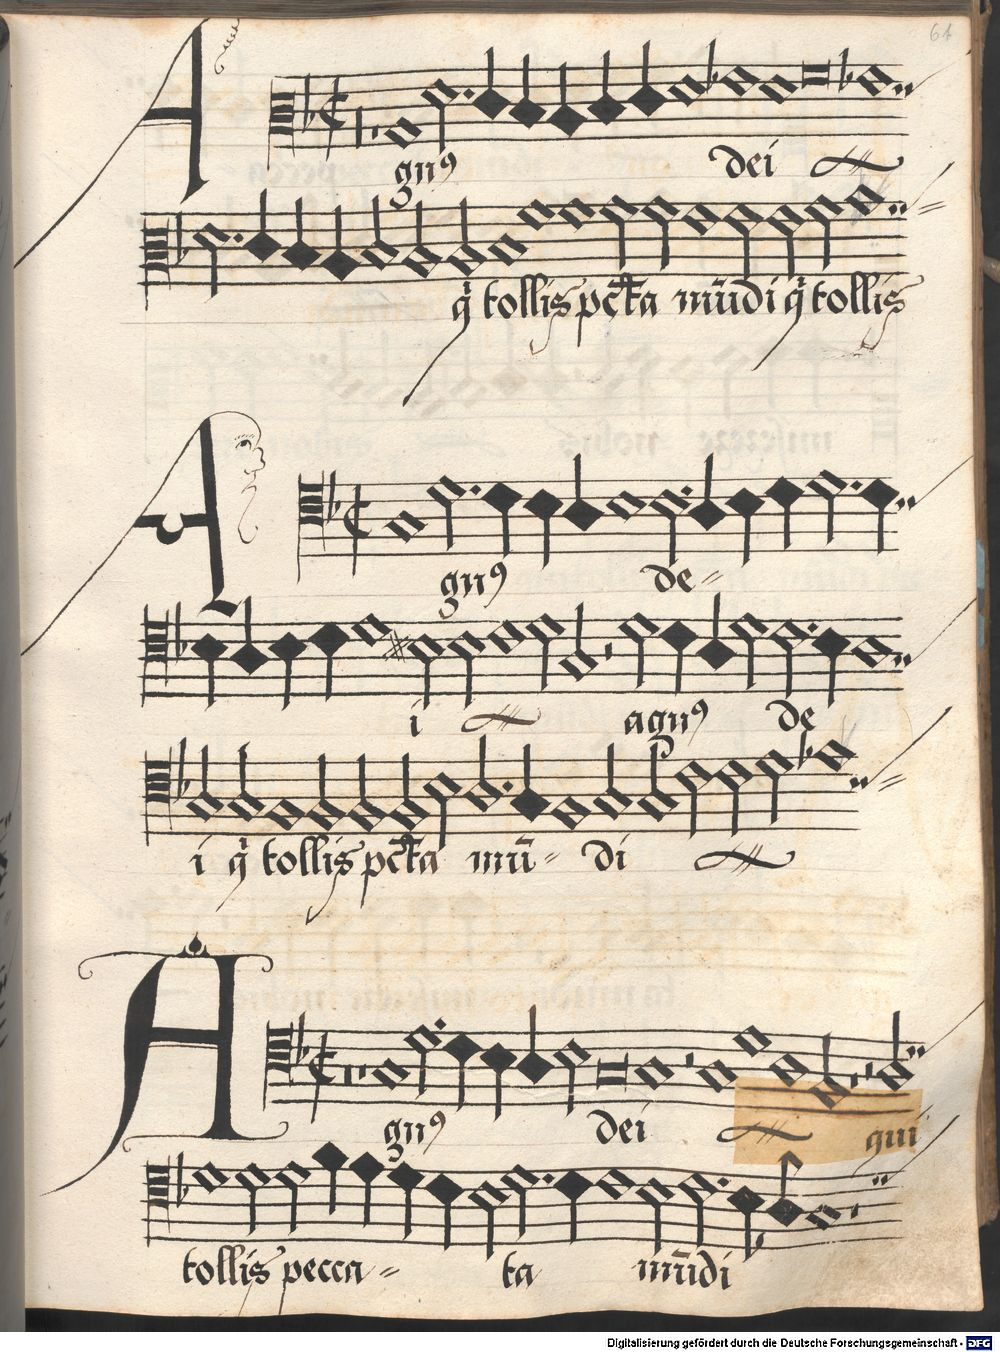 64
Agnꝰ dei
q̄ tollis pc̄ta mūdi q̄ tollis
Agnꝰ de=
i agnꝰ de
i q̄ tollis pc̄ta mū= di
Agnꝰ dei qui
tollis pecca= ta mūdi
Digitalisierung gefördert durch die Deutsche Forschungsgemeinschaft - DFG